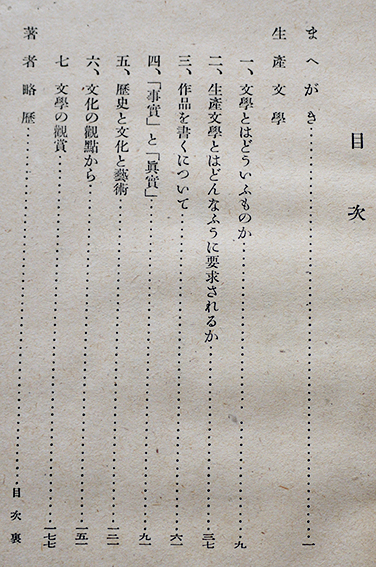 目次
まへがき……一
生產文學
一、文學とはどういふものか……九
二、生產文學とはどんなふうに要求されるか……三七
三、作品を書くについて……六一
四、「事實」と「眞實」……九一
五、歷史と文化と藝術……一二一
六、文化の觀點から……一五一
七 文學の觀賞……一七七
著者略歷……目次裏